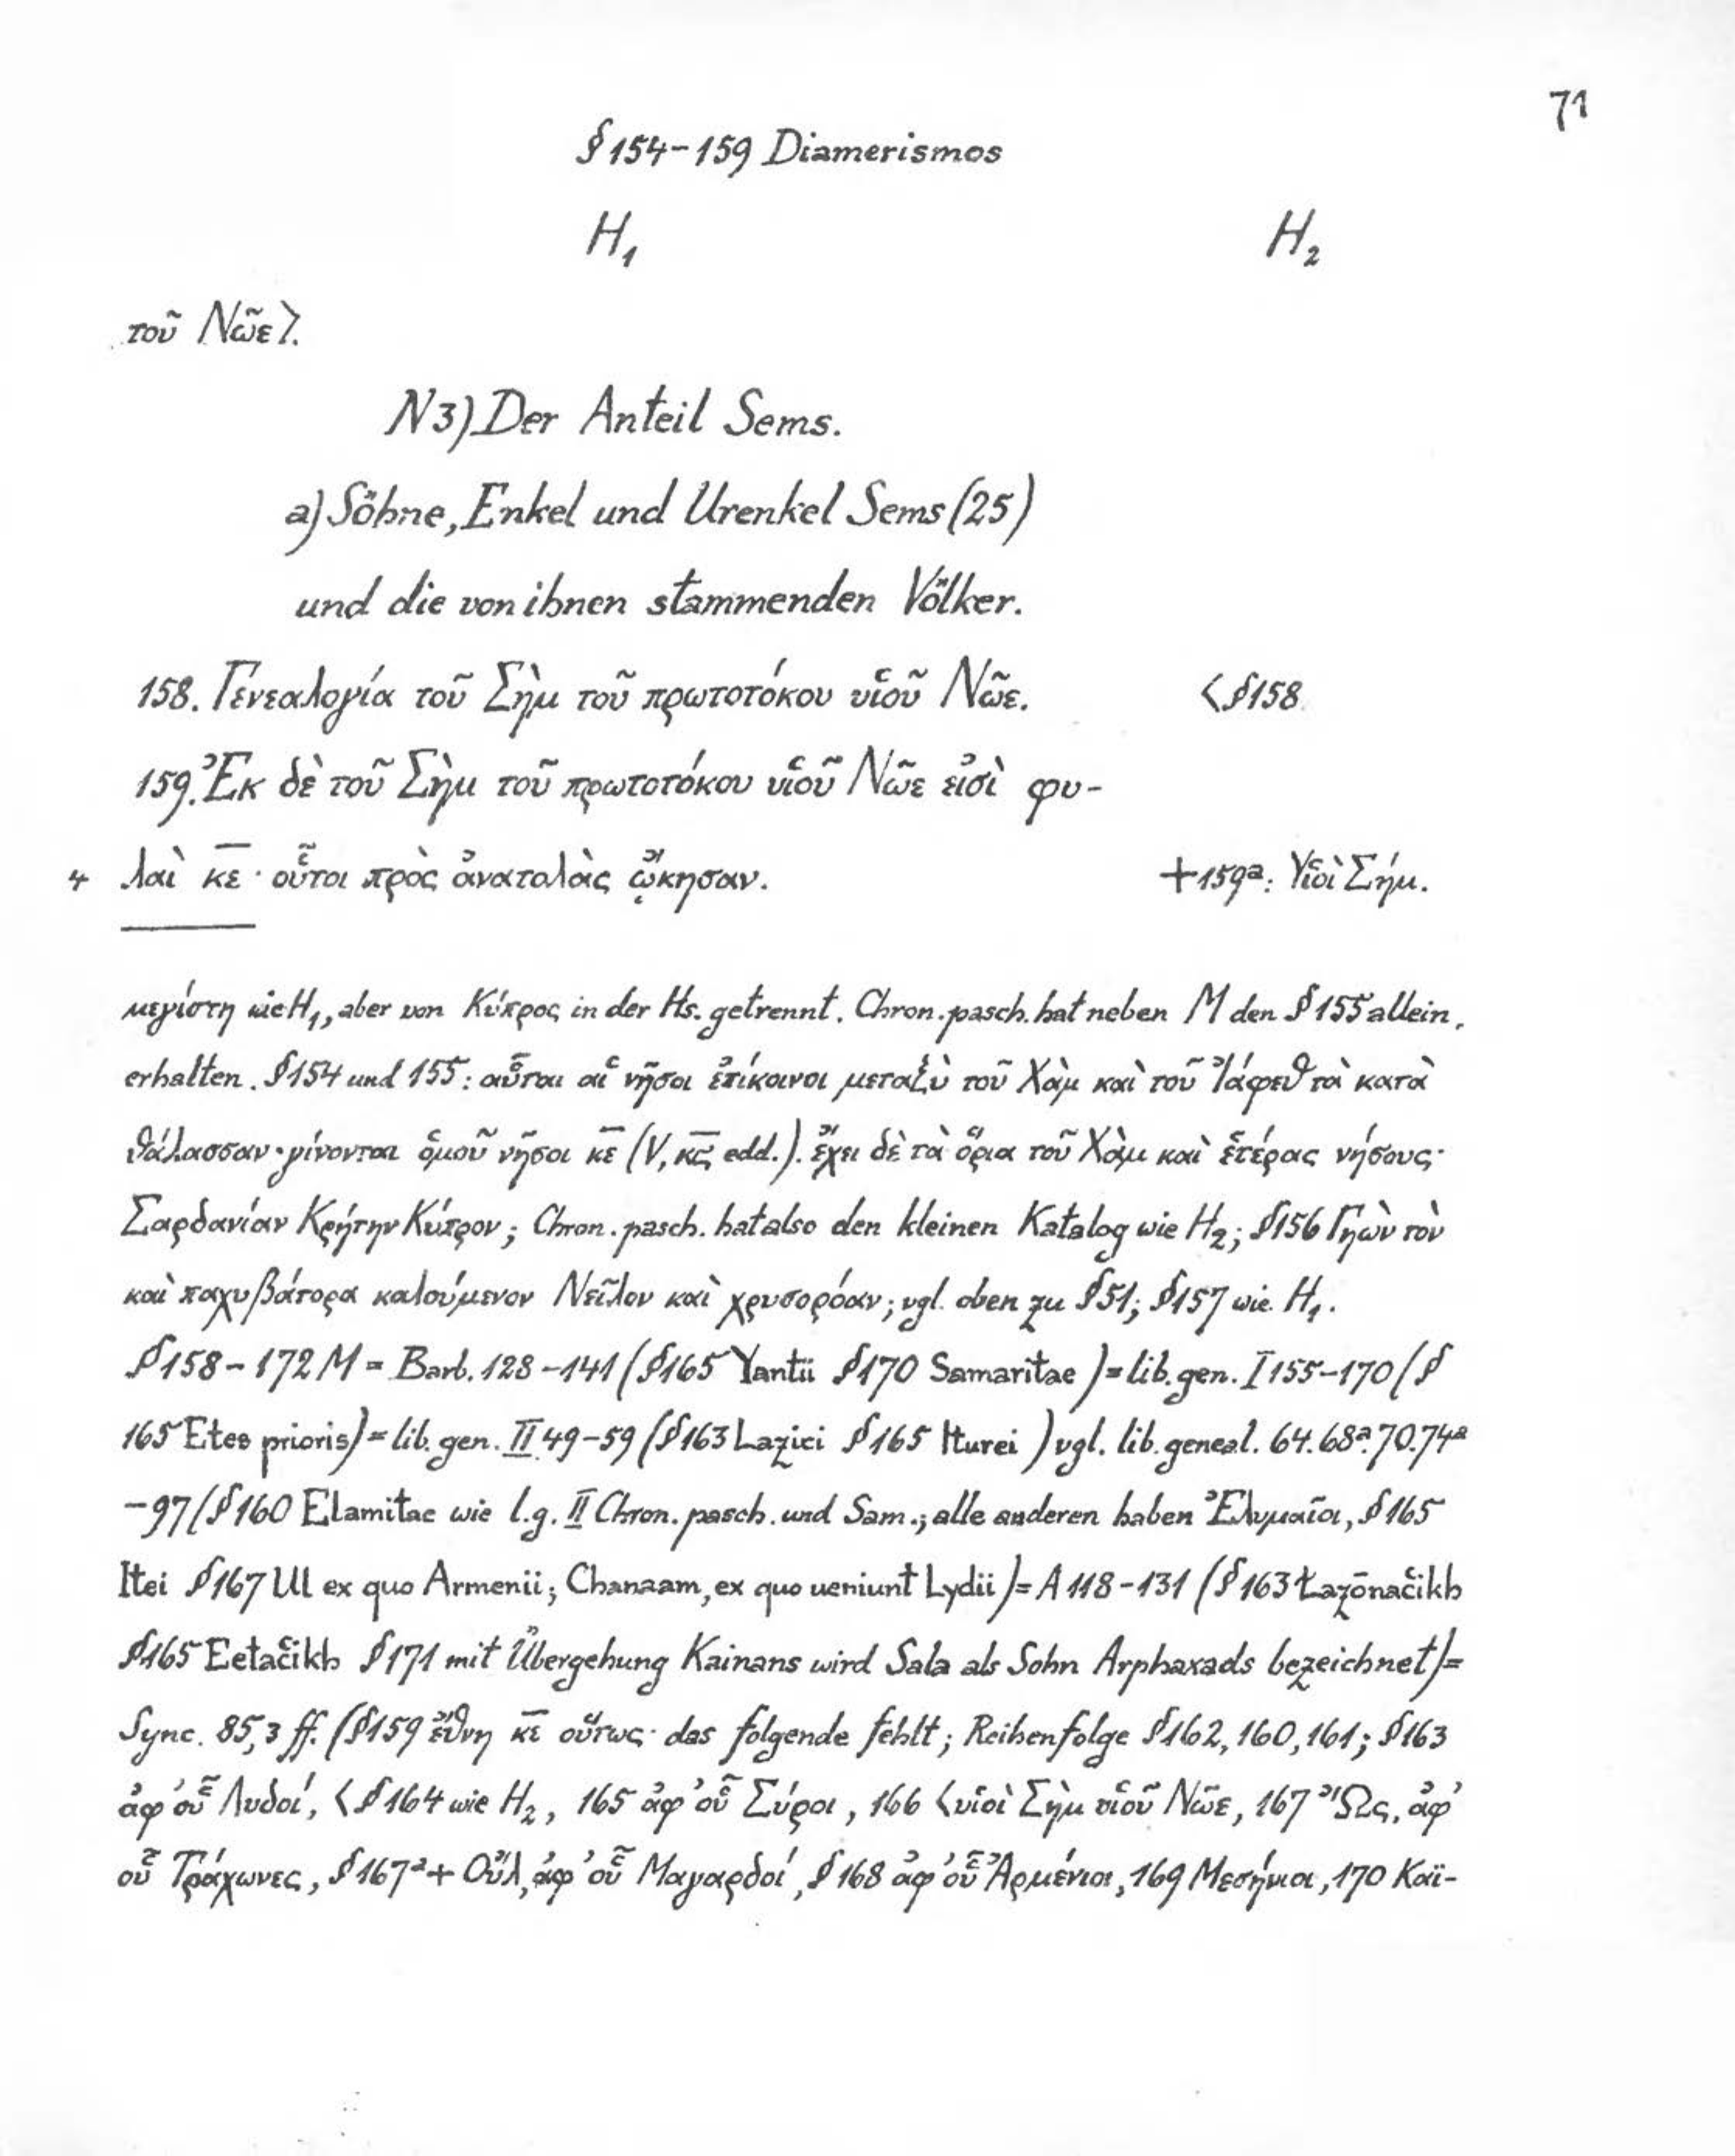 71
§ 154-159 Diamerismos
H₁ H₂
τοῦ Νῶε⟩.
N 3) Der Anteil Sems.
a) Söhne, Enkel und Urenkel Sems (25)
und die von ihnen stammenden Völker.
158. Γενεαλογία τοῦ Σὴμ τοῦ πρωτοτόκου υἱοῦ Νῶε. < § 158
159. Ἐκ δὲ τοῦ Σὴμ τοῦ πρωτοτόκου υἱοῦ Νῶε εἰσὶ φυ-
4 λαὶ κ̅ε̅· οὗτοι πρὸς ἀνατολὰς ᾤκησαν. + 159ª: Υἱοὶ Σήμ.
μεγίστη wie H₁, aber von Κύπρος in der Hs. getrennt. Chron. pasch. hat neben M den § 155 allein
erhalten. § 154 und 155: αὗται αἱ νῆσοι ἐπίκοινοι μεταξὺ τοῦ Χὰμ καὶ τοῦ Ἰάφεθ τὰ κατὰ
θάλασσαν· γίνονται ὁμοῦ νῆσοι κ̅ε̅ (V, κ̅ς̅ edd.). ἔχει δὲ τὰ ὅρια τοῦ Χὰμ καὶ ἑτέρας νήσους·
Σαρδανίαν Κρήτην Κύπρον; Chron. pasch. hat also den kleinen Katalog wie H₂; § 156 Γηὼν τὸν
καὶ παχυβάτορα καλούμενον Νεῖλον καὶ χρυσορόαν; vgl. oben zu § 51; § 157 wie H₁.
§ 158-172 M = Barb. 128-141 (§ 165 Yantii § 170 Samaritae) = lib. gen. I 155-170 (§
165 Etes prioris) = lib. gen. II 49-59 (§ 163 Lazici § 165 Iturei) vgl. lib. geneal. 64. 68ª. 70. 74ª
-97 (§ 160 Elamitae wie l.g. II Chron. pasch. und Sam.; alle anderen haben Ἐλυμαῖοι, § 165
Itei § 167 Ul ex quo Armenii; Chanaam, ex quo ueniunt Lydii) = A 118-131 (§ 163 Łazōnačikh
§ 165 Eetačikh § 171 mit Übergehung Kainans wird Sala als Sohn Arphaxads bezeichnet) =
Sync. 85,3 ff. (§ 159 ἔθνη κ̅ε̅ οὕτως· das folgende fehlt; Reihenfolge § 162, 160, 161; § 163
ἀφ' οὗ Λυδοί, < § 164 wie H₂, 165 ἀφ' οὗ Σύροι, 166 < υἱοὶ Σὴμ υἱοῦ Νῶε, 167 Ὢς, ἀφ'
οὗ Τράχωνες, § 167ª + Οὔλ, ἀφ' οὗ Μαγαρδοί, § 168 ἀφ' οὗ Ἀρμένιοι, 169 Μεσήνιοι, 170 Καϊ-